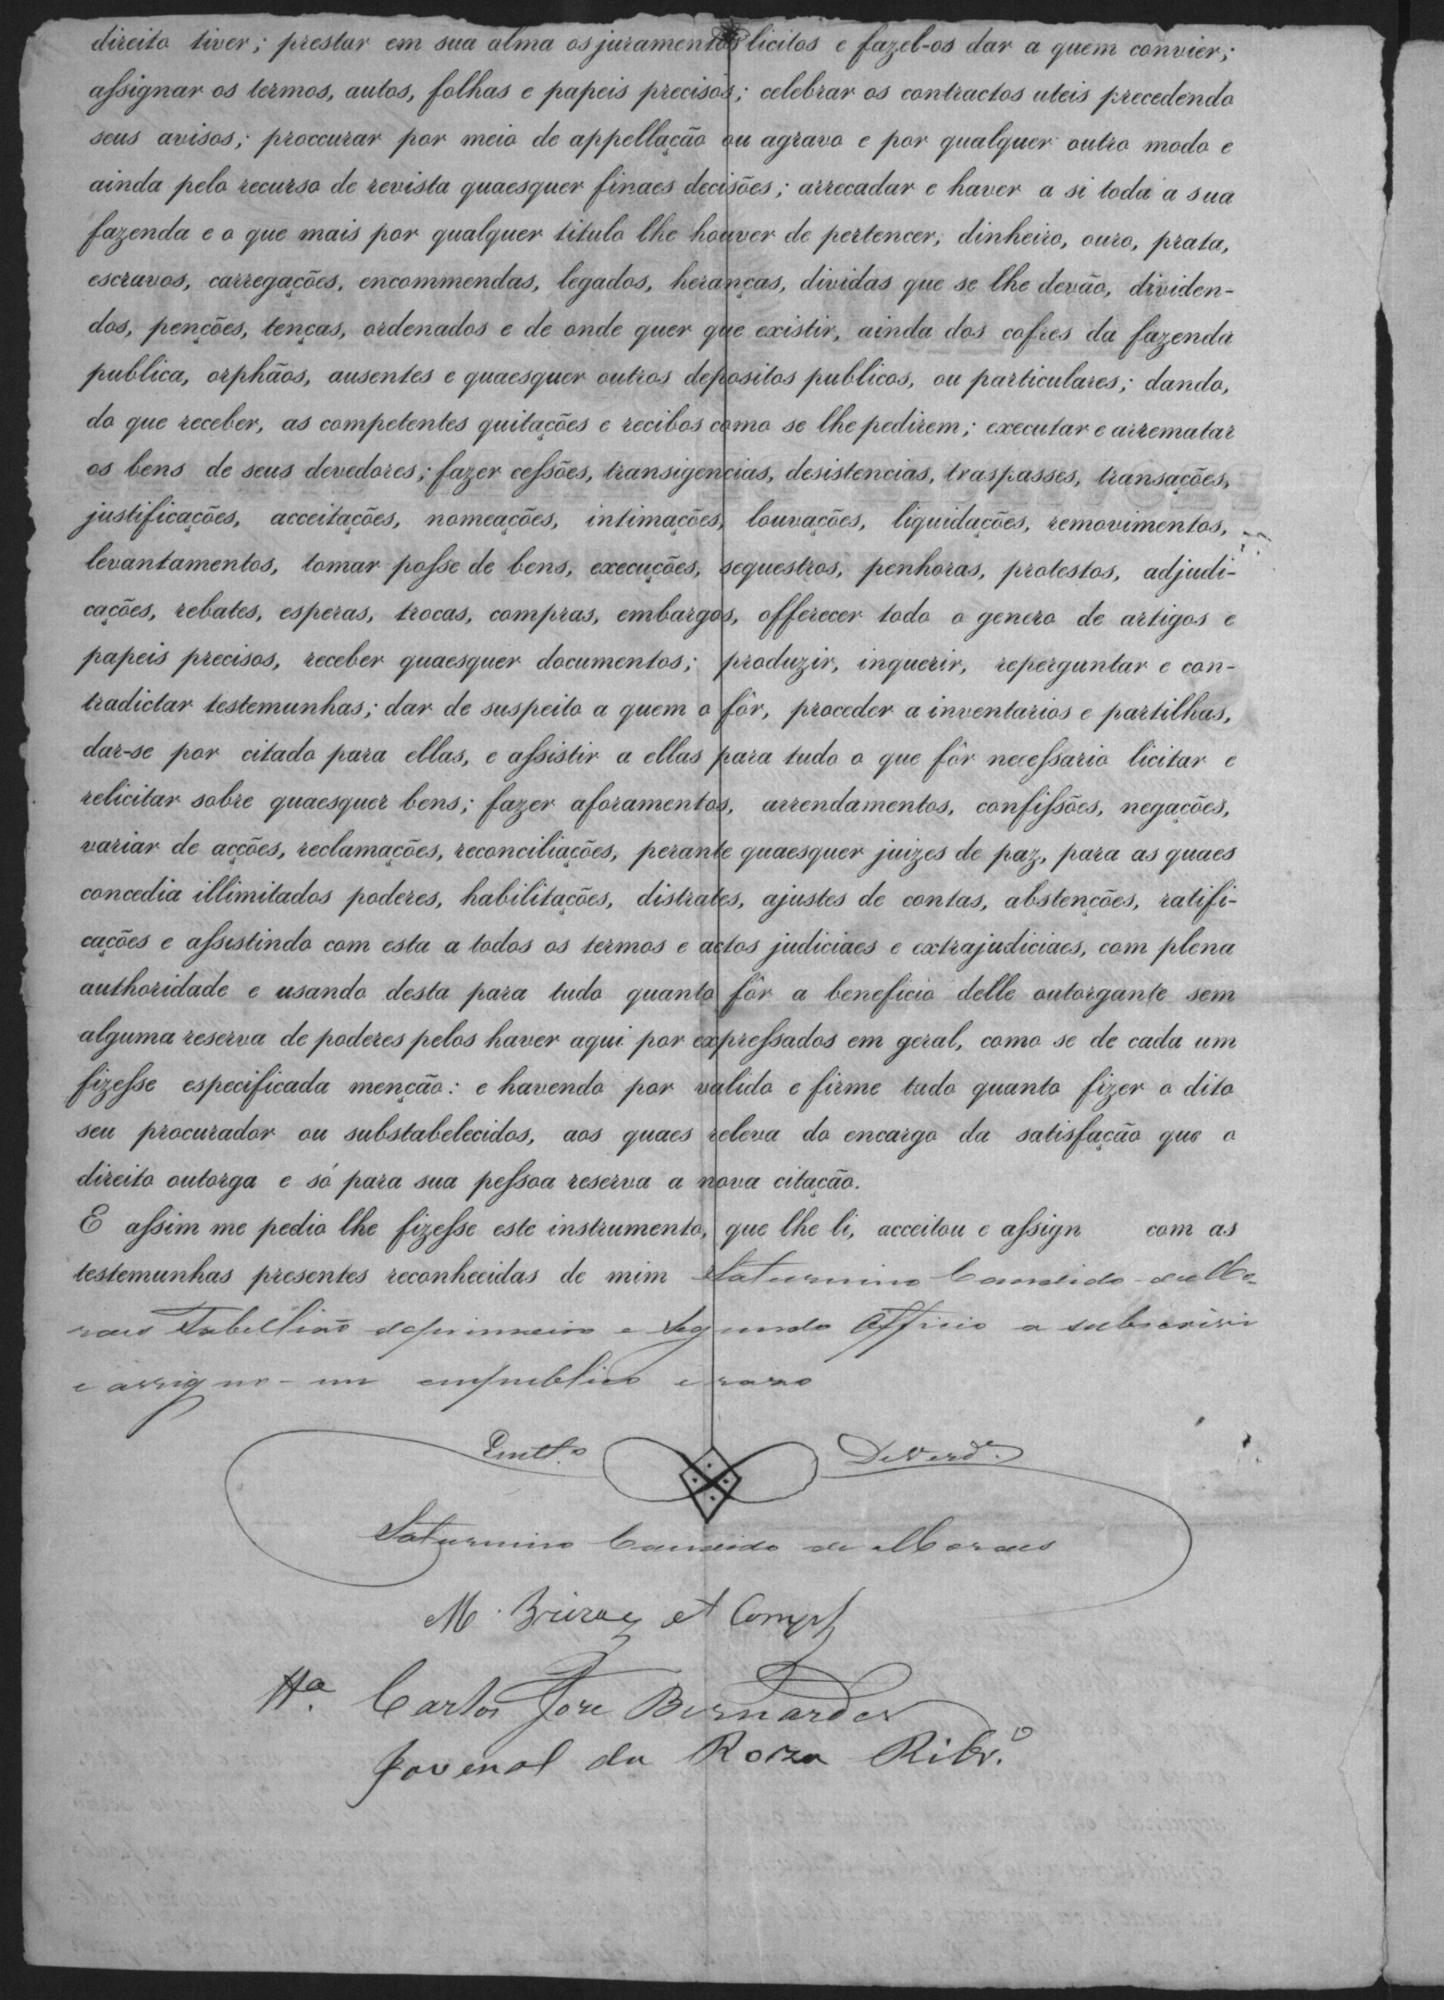 direito tiver; prestar em sua alma os juramentos licitos e fazel-os dar a quem convier;
assignar os termos, autos, folhas e papeis precisos; celebrar os contractos uteis precedendo
seus avisos; proccurar por meio de appellação ou agravo e por qualquer outro modo e
ainda pelo recurso de revista quaesquer finaes decisões; arrecadar e haver a si toda a sua
fazenda e o que mais por qualquer titulo lhe houver de pertencer, dinheiro, ouro, prata,
escravos, carregações, encommendas, legados, heranças, dividas que se lhe devão, dividen-
dos, penções, tenças, ordenados e de onde quer que existir, ainda dos cofres da fazenda
publica, orphãos, ausentes e quaesquer outros depositos publicos, ou particulares; dando,
do que receber, as competentes quitações e recibos como se lhe pedirem; executar e arrematar
os bens de seus devedores; fazer cessões, transigencias, desistencias, traspasses, transações,
justificações, acceitações, nomeações, intimações, louvações, liquidações, removimentos,
levantamentos, tomar posse de bens, execuções, sequestros, penhoras, protestos, adjudi-
cações, rebates, esperas, trocas, compras, embargos, offerecer todo o genero de artigos e
papeis precisos, receber quaesquer documentos; produzir, inquerir, reperguntar e con-
tradictar testemunhas; dar de suspeito a quem o fôr, proceder a inventarios e partilhas,
dar-se por citado para ellas, e assistir a ellas para tudo o que fôr necessario licitar e
relicitar sobre quaesquer bens; fazer aforamentos, arrendamentos, confissões, negações,
variar de acções, reclamações, reconciliações, perante quaesquer juizes de paz, para as quaes
concedia illimitados poderes, habilitações, distrates, ajustes de contas, abstenções, ratifi-
cações e assistindo com esta a todos os termos e actos judiciaes e extrajudiciaes, com plena
authoridade e usando desta para tudo quanto fôr a beneficio delle outorgante sem
alguma reserva de poderes pelos haver aqui por expressados em geral, como se de cada um
fizesse especificada menção: e havendo por valido e firme tudo quanto fizer o dito
seu procurador ou substabelecidos, aos quaes releva do encargo da satisfação que o
direito outorga e só para sua pessoa reserva a nova citação.
E assim me pedio lhe fizesse este instrumento, que lhe li, acceitou e assign com as
testemunhas presentes reconhecidas de mim Saturnino Candido de Mo-
raes Tabellião do primeiro e Segundo Officio a subscrivi
e assigno-me em publico e razo
Em tt.º De Verd.e
Saturnino Candido de Moraes
M. et Comp
Tta. Carlos Jose Bernardes
Jovenal da Roza Ribr.º